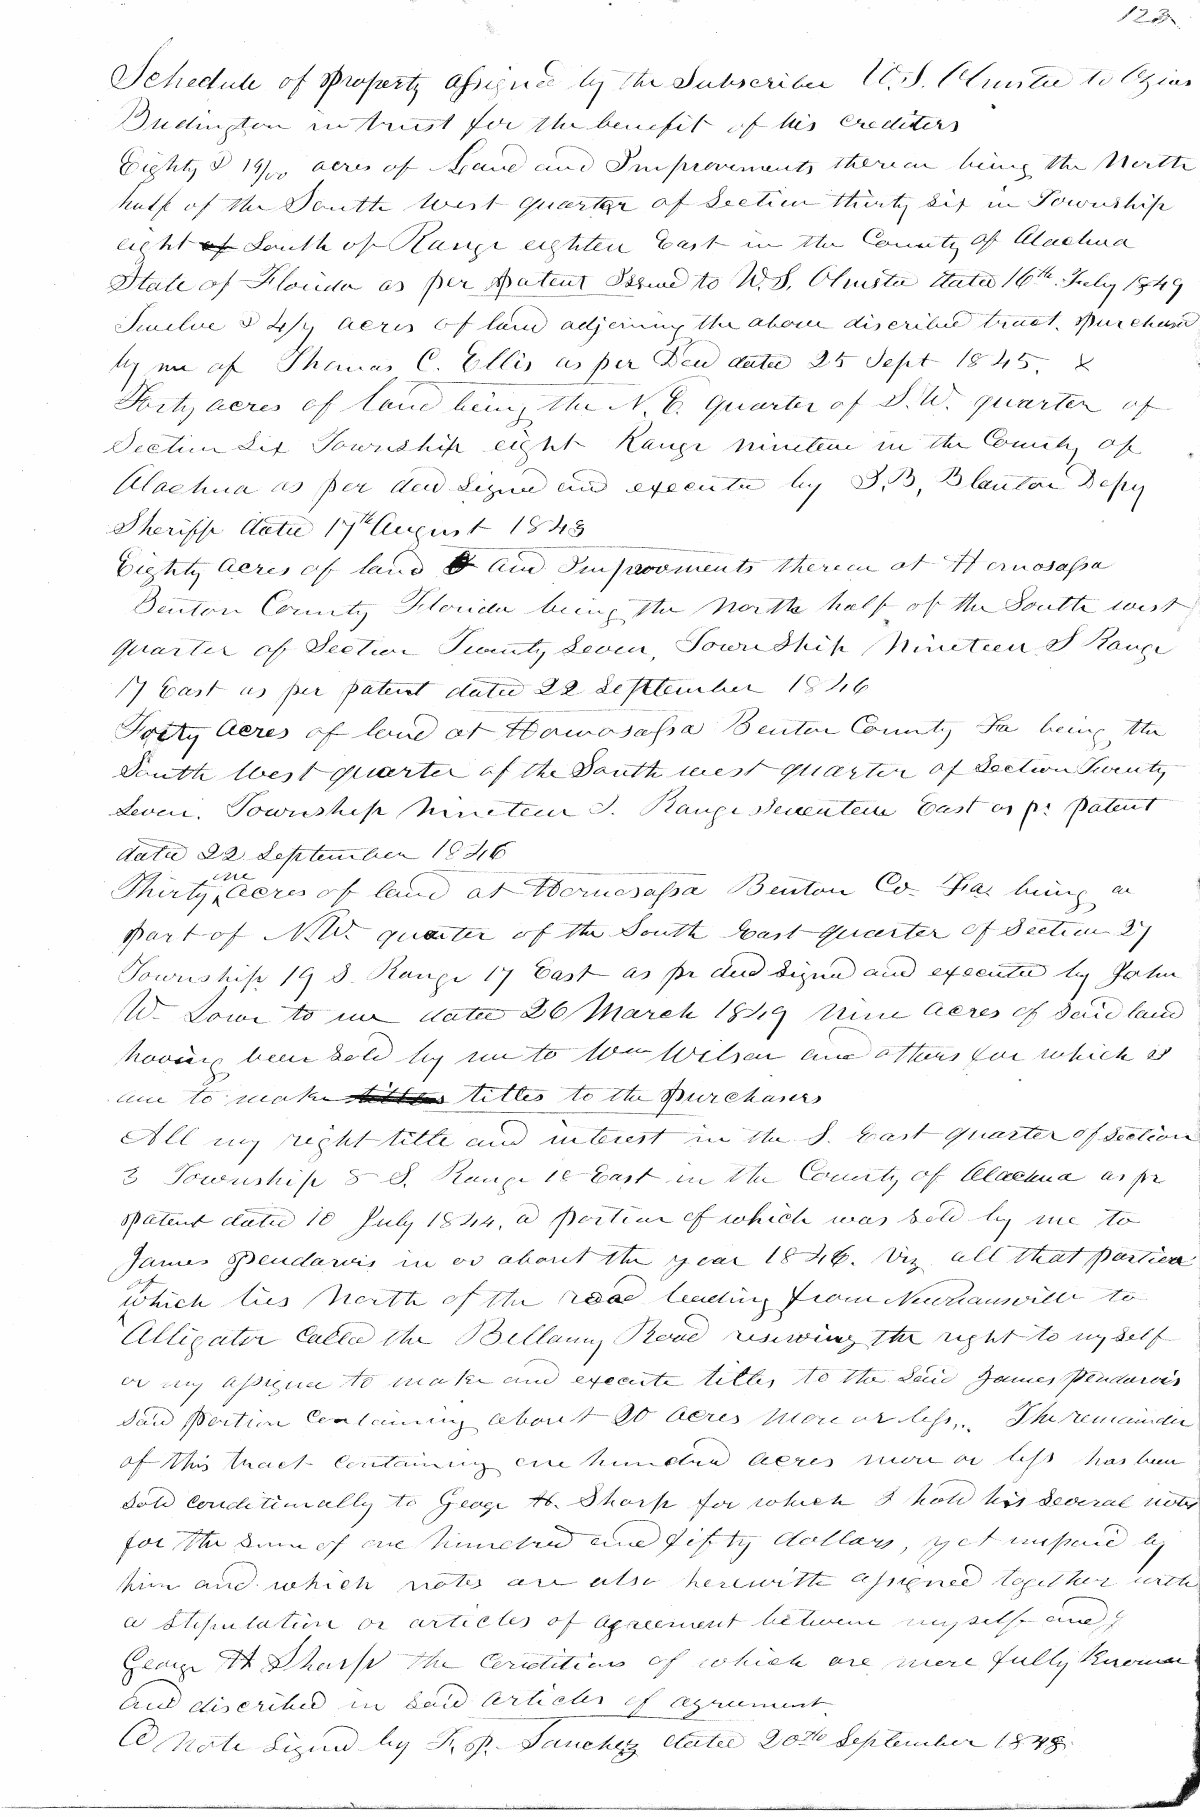 123
Schedule of Property assigned by the Subscriber W. S. Olmstee to Ozias
Budington in trust for the benefit of his crediters
Eighty & 19/00 acres of Land and Improvments thereon being the North
half of the South West quarter of Section thirty six in Township
eight of South of Range eighten East in the County of Alachua
State of Florida as per patent Issued to W. S. Olmstee dated 16th July 1849
Twelve & 4/4 acres of land adjoining the above discribed tract. purchased
by me of Thomas C. Ellis as per Deed dated 25 Sept 1845. &
Forty acres of land being the N. E. quarter of S. W. quarter of
Section Six Township eight Range nineteen in the County of
Alachua as per deed signed and executed by S. B. Blanton Depy
Sheriff dated 17th August 1843
Eighty acres of land & and Improvments thereon at Homosassa
Benton County Florida being the North half of the South west
quarter of Section Twenty Seven, Township Nineteen S Range
17 East as per patent dated 22 September 1846
Forty Acres of land at Homosassa Benton County Fa being the
South West quarter of the South west quarter of Section Twenty
Seven. Township Nineteen S. Range Seventeen East as pr patent
dated 22 September 1846
Thirty one acres of land at Homosassa Benton Co. Fa. being a
part of N. W. quarter of the South East quarter of Section 27
Township 19 S. Range 17 East as pr deed signed and executed by John
W. Lowe to me dated 26 March 1849 Nine acres of said land
having been sold by me to Wm Wilson and others for which I
am to make titles titles to the purchasers
All my right title and interest in the S. East quarter of Section
3 Township 8 S. Range 18 East in the County of Alachua as pr
patent dated 10 July 1844, a portion of which was sold by me to
James Pendarvis in or about the year 1846. Viz all that portion
of which lies North of the road leading from Newnansville to
Alligator called the Bellamy Road reserving the right to myself
or my assignee to make and execute titles to the said James Pendarvis
said portion containing about 20 acres more or less,. The remainder
of this tract containing one hundred acres more or less has been
sold conditionally to George H. Sharp for which I hold his several notes
for the sum of one hundred and fifty dollars, yet unpaid by
him and which notes are also herewith assigned together with
a stipulation or articles of agreement between myself and
George H Sharp the conditions of which are more fully Known
and discribed in said articles of agreement.
A Note signed by F. P. Sanchez dated 20th September 1848